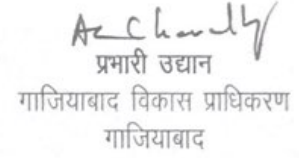 प्रभारी उद्यान
गाजियाबाद विकास प्राधिकरण
गाजियाबाद